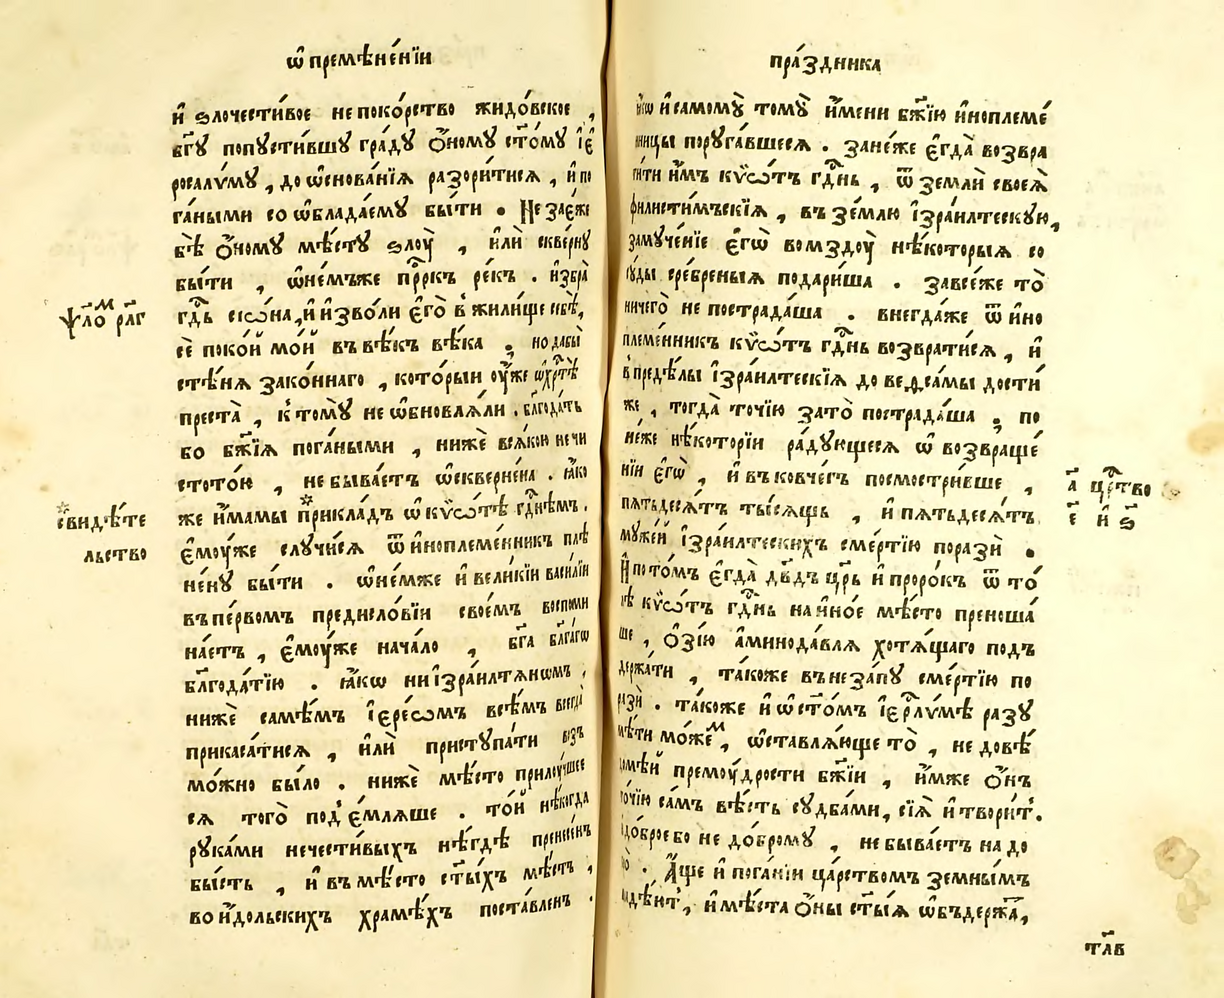 ѡ҆ премѣне́нїи
и҆ ѕлочести́вое непоко́рство жидо́вское ,
бг҃ꙋ попꙋсти́вшꙋ гра́дꙋ ѻ҆́номꙋ ст҃о́мꙋ і҆є
росали́мꙋ , до ѡ҆снова́нїѧ разори́тисѧ , и҆ по
га́ными со ѡ҆блада́емꙋ бы́ти . Не за́еже
бѣ̀ ѻ҆́номꙋ мѣ́стꙋ ѕлоу̀ , и҆лѝ скве́рнꙋ
бы́ти , ѡ҆не́мъже прⷪ҇ркъ ре́къ . и҆збра̀
гдⷭ҇ь сїѡ́на , и҆ и҆зво́ли є҆го̀ в̾ жили́ще себѣ̀ ,
сѐ поко́й мо́й въ вѣ́къ вѣ́ка . но дабы̀
стѣ́нѧ зако́ннаго , кото́рыи ᲂу҆́же ѡ҆ хрⷭ҇тѣ̀
преста̀ , к̾ томꙋ̀ не ѡ҆бновлѧ́ли . блгⷣть
бо бж҃їѧ пога́ными , нижѐ всѧ́кою нечи
стото́ю , не быва́етъ ѡ҆скверне́на . ꙗ҆́ко
же и҆́мамы прикла́дъ ѡ҆ кїѡ́тѣ гдⷭ҇немъ .
є҆мꙋ́же слꙋчи́сѧ ѿ и҆ноплеме́нникъ плѣ
не́нꙋ бы́ти . ѡ҆не́мже и҆ вели́кїи васи́лїи
въ пе́рвомъ предисло́вїи свое́мъ воспоми
на́етъ , є҆мꙋ́же нача́ло , бг҃а бл҃га́гѡ
блгⷣа́тїю . ꙗ҆́кѡ ни і҆зра́илтѧнѡмъ ,
нижѐ самѣ́мъ і҆ере́ѡмъ всѣ́мъ всегда̀
прикаса́тисѧ , и҆лѝ пристꙋпа́ти воз̾
мо́жно бы́ло . нижѐ мѣ́сто прилꙋ́чшее
сѧ того̀ под̾е́млѧше . то́й нѣ́когда
рꙋка́ми нечести́выхъ нѣ́гдѣ пренесе́нъ
бы́сть , и҆ въ мѣ́сто ст҃ы́хъ мѣ́стъ ,
во и҆́дольскихъ хра́мѣхъ поста́вленъ .
ѱало́м рл҃г
свидѣ́те
льство
пра́здника
и҆ самомꙋ̀ томꙋ̀ и҆́мени бж҃їю и҆ноплеме́
нницы порꙋга́вшесѧ . зане́же є҆гда̀ возвра
ти́ти и҆́мъ кїѡ́тъ гдⷭ҇нь , ѿ землѝ своеѧ̀
филисти́мъскїѧ , въ зе́млю і҆зра́илтескꙋю ,
за мꙋче́нїе є҆гѡ̀ во мздоу̀ нѣ́которыѧ со
сꙋ́ды сре́бреныѧ подари́ша . за все́же то̀
ничего̀ не пострада́ша . внегда́же ѿ и҆но
племе́нникъ кїѡ́тъ гдⷭ҇нь возврати́сѧ , и҆
в̾ преде́лы і҆зра́илтескїѧ до веѳсамы дости́
же , тогда̀ то́чїю за то̀ пострада́ша , по
не́же нѣ́которїи ра́дꙋющесѧ ѡ҆ возвраще́
нїи є҆гѡ̀ , и҆ въ ковче́гъ посмотри́вше ,
пѧтьдесѧ́тъ ты́сѧщь , и҆ пѧтьдесѧ́тъ
мꙋже́й і҆зра́илтескихъ сме́ртїю поразѝ .
И҆ пото́мъ є҆гда̀ дв҃дъ цр҃ь и҆ проро́къ ѿ то́
лѣ кїѡ́тъ гдⷭ҇нь на и҆но́е мѣ́сто преноша́
ше , ѻ҆зі́ю а҆минода́влѧ хотѧ́щаго подъ
держа́ти , та́коже вънеза́пꙋ сме́ртїю по
разѝ . та́коже и҆ ѡ҆ ст҃о́мъ і҆ерⷭ҇ли́мѣ разꙋ
мѣ́ти мо́жем , ѡ҆ставлѧ́юще то̀ , недовѣ́
домѣй премꙋ́дрости бж҃їи , и҆́мже ѻ҆́нъ
то́чїю са́мъ вѣ́сть сꙋдба́ми , сїѧ̀ и҆ твори́т .
до́брое бо не до́бромꙋ , не быва́етъ на до
А҆́ще и҆ пога́нїи ца́рствомъ земны́мъ
и҆ мѣ́ста ѻ҆́ны ст҃ы́ѧ ѡ҆бъдержа́т ,
а҃ црⷭ҇тво
е҃ и҆ ѕ҃
тл҃в